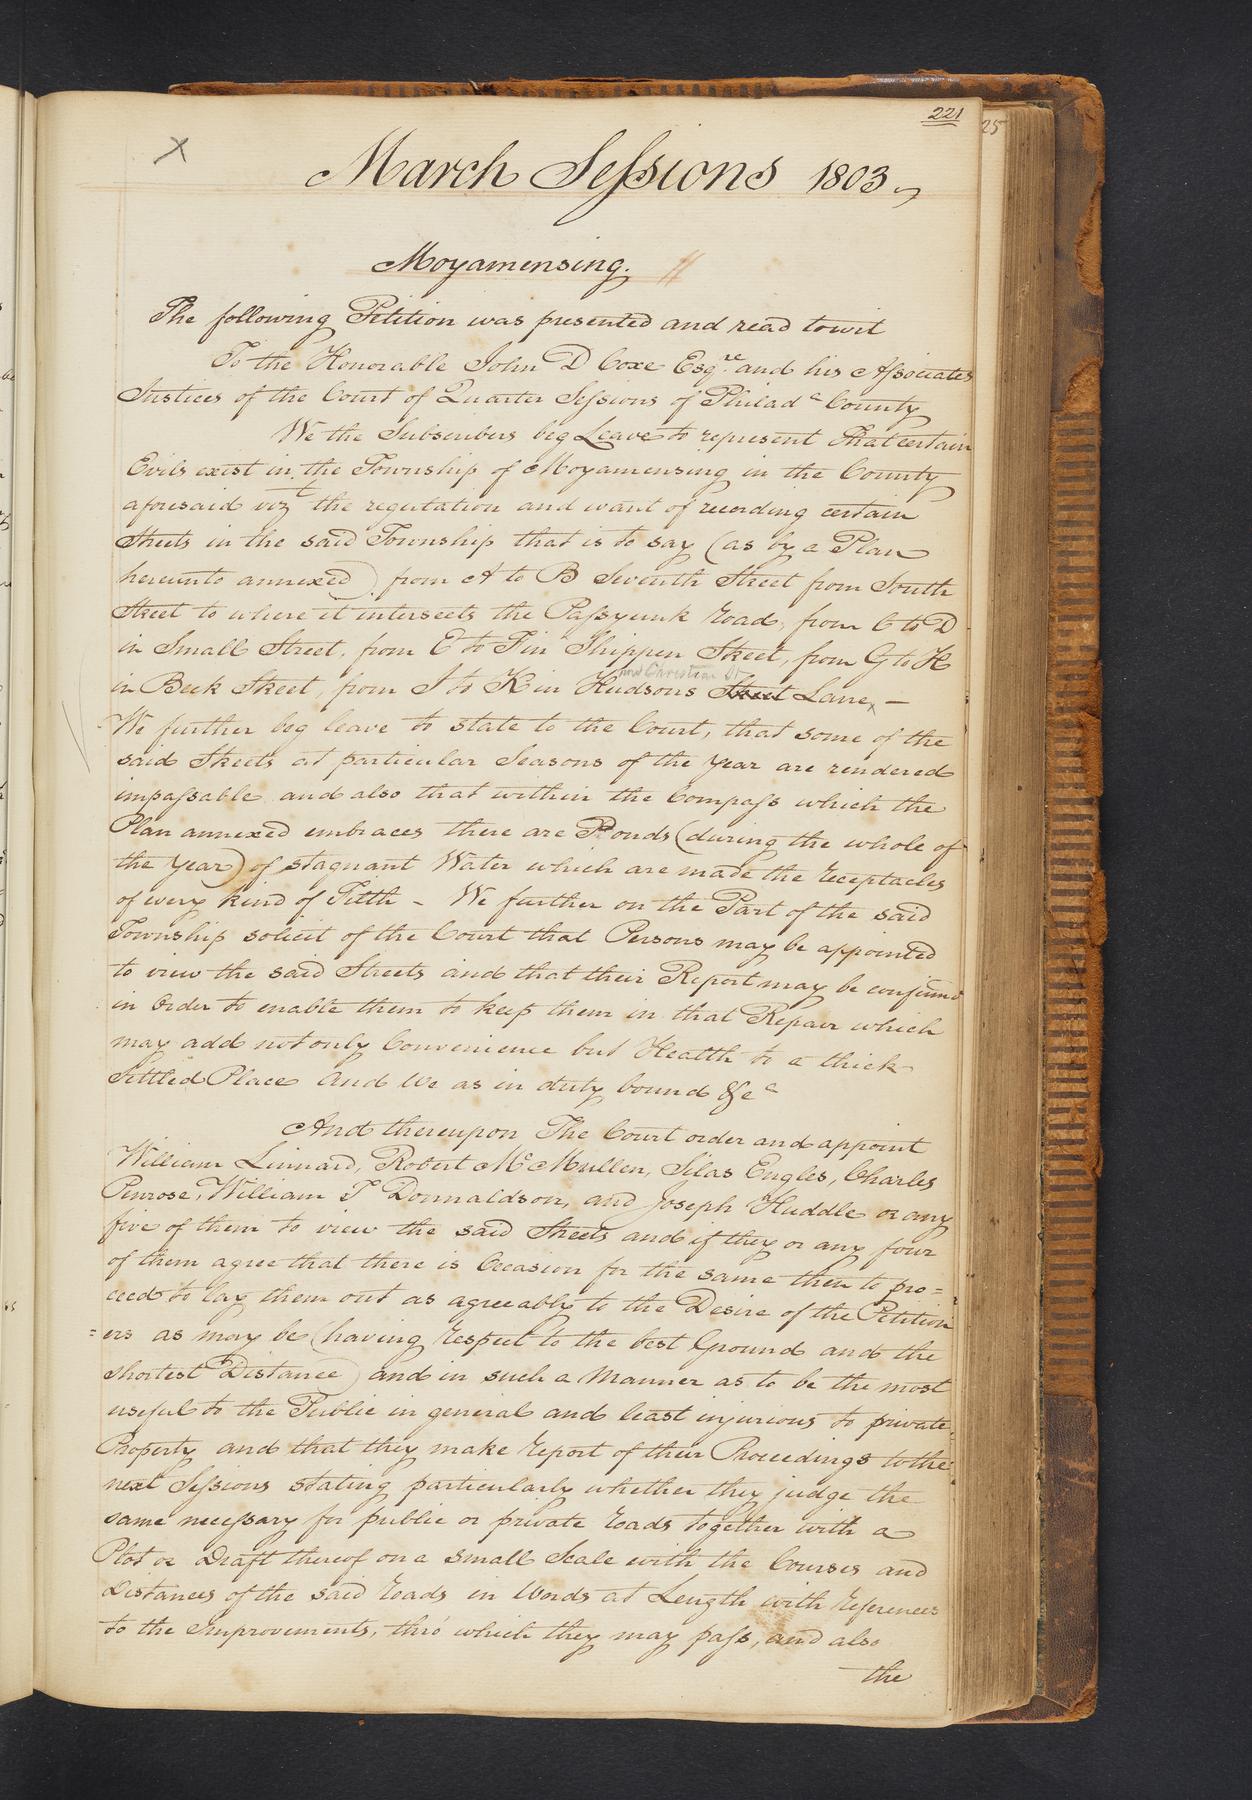 221
25
X
March Sessions 1803
Moyamensing. //
The following Petition was presented and read towit
To the Honorable John D Coxe Esqre. and his Associates
Justices of the Court of Quarter Sessions of Philada County
We the Subscribers beg Leave to represent That certain
Evils exist in the Township of Moyamensing in the County
aforesaid vizt the regulation and want of recording certain
Streets in the said Township that is to say (as by a Plan
hereunto annexed) from A to B Seventh Street from South
Street to where it intersects the Passyunk road, from C to D
in Small Street, from E to F in Shippen Street, from G to H
now Christian St
in Beck Street, from I to K in Hudsons Street Lane, —
We further beg leave to state to the Court, that some of the
said Streets at particular Seasons of the year are rendered
impassable and also that within the Compass which the
Plan annexed embraces there are Ponds (during the whole of
the Year) of stagnant Water which are made the receptacles
of every kind of Filth - We further on the Part of the said
Township solicit of the Court that Persons may be appointed
to view the said Streets and that their Report may be confirmd
in Order to enable them to keep them in that Repair which
may add not only Convenience but Health to a thick
Settled Place And We as in duty bound &ca
And thereupon The Court order and appoint
William Linnard, Robert McMullen, Silas Engles, Charles
Penrose, William T Donnaldson, and Joseph Huddle or any
five of them to view the said Streets and if they or any four
of them agree that there is Occasion for the same then to pro=
ceed to lay them out as agreeably to the Desire of the Petition
=ers as may be (having respect to the best Ground and the
shortest Distance) and in such a Manner as to be the most
useful to the Public in general and least injurious to private
Property and that they make report of their Proceedings to the
next Sessions stating particularly whether they judge the
same necessary for public or private roads together with a
Plot or Draft thereof on a small Scale with the Courses and
Distances of the said roads in Words at Length with references
to the Improvements, thro' which they may pass, and also
the